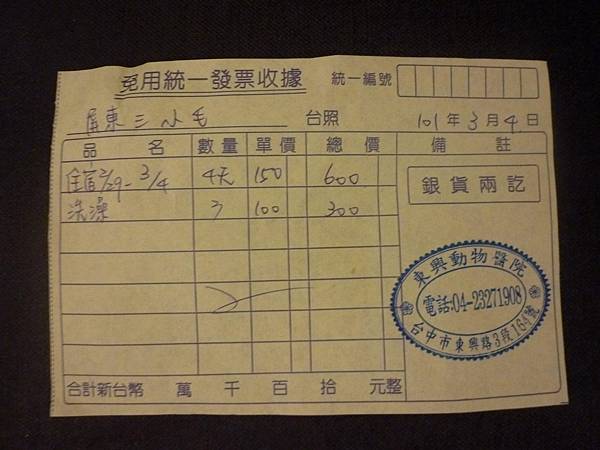 免用統一發票收據 統一編號
屏東三小毛 台照 101年3月4日
品名 數量 單價 總價 備註
住宿2/29-3/4 4天 150 600
銀貨兩訖
洗澡 3 100 300
東興動物醫院
電話:04-23271908
台中市東興路3段164號
合計新台幣 萬 千 百 拾 元整